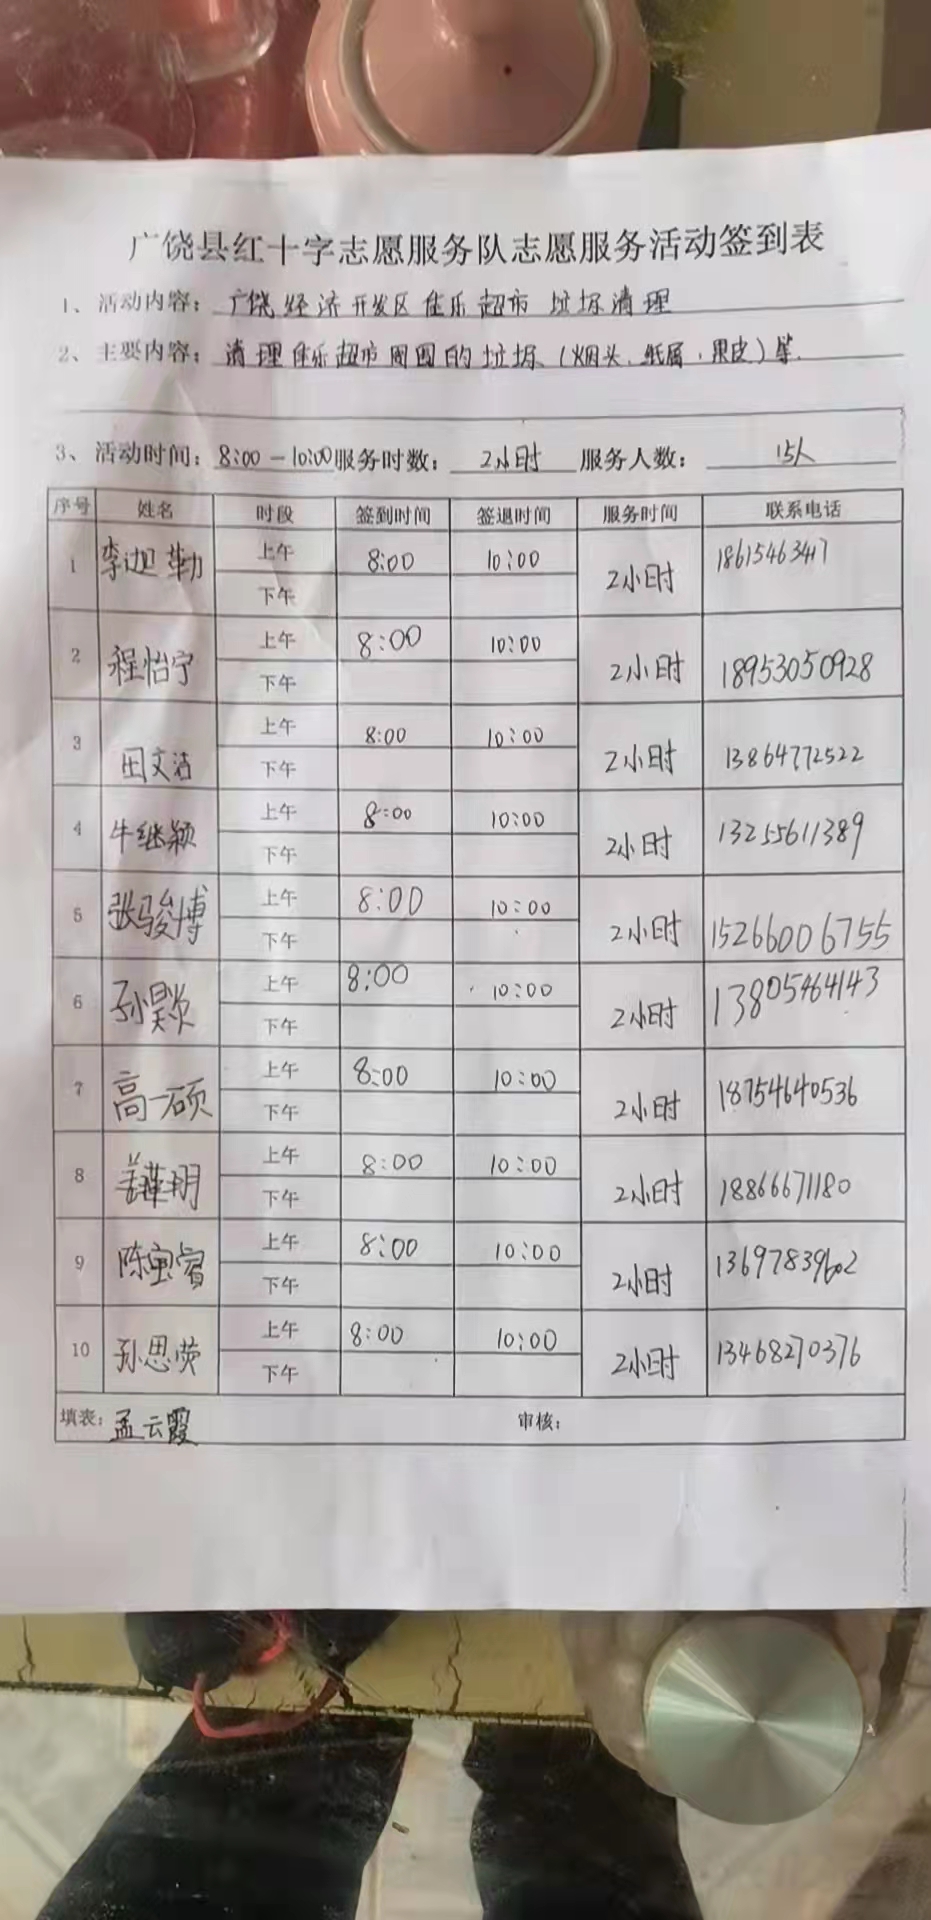 广饶县红十字志愿服务队志愿服务活动签到表
1、活动内容：广饶经济开发区佳乐超市垃圾清理
2、主要内容：清理佳乐超市周围的垃圾（烟头、纸屑、果皮）等.
3、活动时间：8:00-10:00服务时数：2小时 服务人数：15人
序号 姓名 时段 签到时间 签退时间 服务时间 联系电话
1 李迦勒 上午 8:00 10:00 2小时 18615463417
下午
2 程怡宁 上午 8:00 10:00 2小时 18953050928
下午
3 田文洁 上午 8:00 10:00 2小时 13864772522
下午
4 牛继颖 上午 8:00 10:00 2小时 13255611389
下午
5 张骏博 上午 8:00 10:00 2小时 15266006755
下午
6 孙昊 上午 8:00 10:00 2小时 13805464143
下午
7 高一硕 上午 8:00 10:00 2小时 18754640536
下午
8 上午 8:00 10:00 2小时 18866671180
下午
9 陈宝睿 上午 8:00 10:00 2小时 13697839602
下午
10 孙思荧 上午 8:00 10:00 2小时 13468270376
下午
填表：孟云霞 审核：